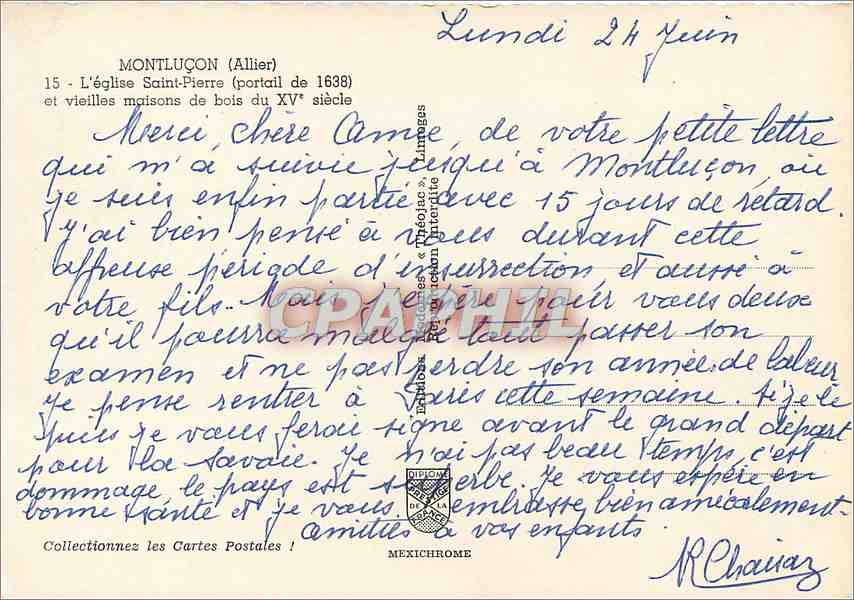 Lundi 24 Juin
MONTLUÇON (Allier)
15 - L'église Saint-Pierre (portail de 1638)
et vieilles maisons de bois du XVe siècle
Merci, chère Amie, de votre petite lettre
qui m'a suivie jusqu'à Montluçon, où
je suis enfin partie avec 15 jours de retard.
J'ai bien pensé à vous durant cette
affreuse période d'insurrection et aussi à
votre fils. Mais j'espère pour vous deux
qu'il pourra malgré tout passer son
examen et ne pas perdre son année de labeur
Je pense rentrer à Paris cette semaine. Si je le
puis je vous ferai signe avant le grand départ
pour la Savoie. Je n'ai pas beau temps, c'est
dommage, le pays est superbe. Je vous espère en
bonne santé et je vous embrasse bien amicalement-
Amitiés à vos enfants
Editions Modernes « Théojac », Limoges
Reproduction Interdite
CPAPHIL
DIPLOME
PRESTIGE
DE LA
FRANCE
Collectionnez les Cartes Postales !
MEXICHROME